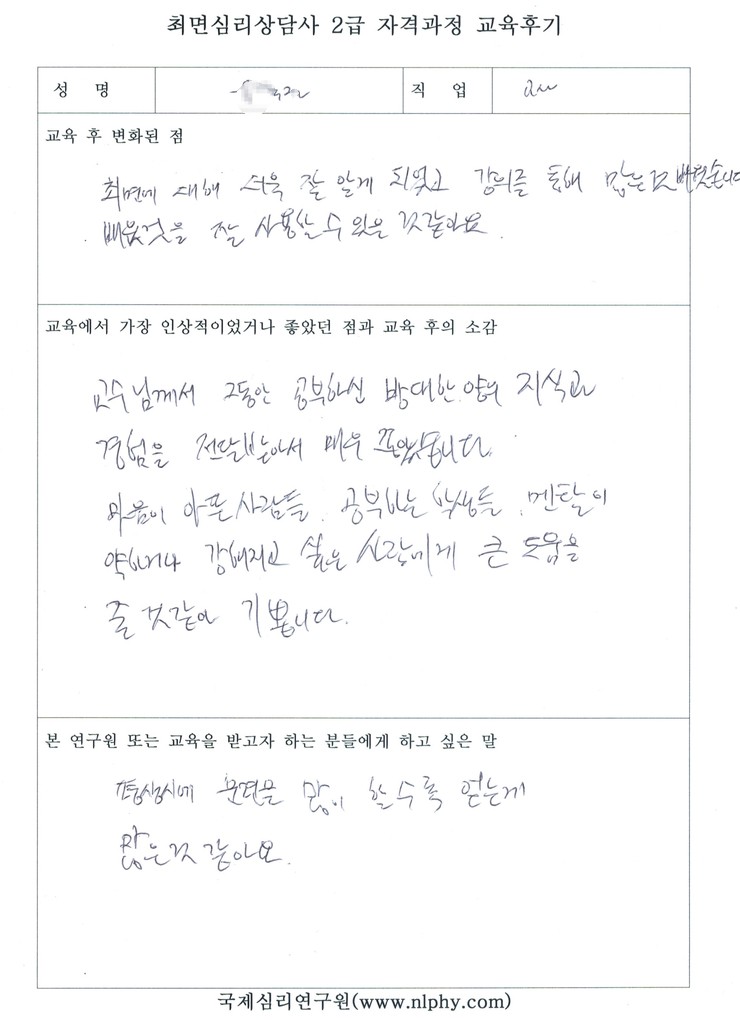 최면심리상담사 2급 자격과정 교육후기
성 명
직 업 교사
교육 후 변화된 점
최면에 대해 더욱 잘 알게 되었고 강의를 통해 많은 것 배웠습니다
배운것을 잘 사용할 수 있을 것 같아요.
교육에서 가장 인상적이었거나 좋았던 점과 교육 후의 소감
교수님께서 그동안 공부하신 방대한 양의 지식과
경험을 전달받아서 매우 좋았습니다.
마음이 아픈 사람들, 공부하는 학생들, 멘탈이
약하거나 강해지고 싶은 사람에게 큰 도움을
줄 것 같아 기쁩니다.
본 연구원 또는 교육을 받고자 하는 분들에게 하고 싶은 말
평상시에 많이 할수록 얻는게
많은것 같아요.
국제심리연구원(www.nlphy.com)